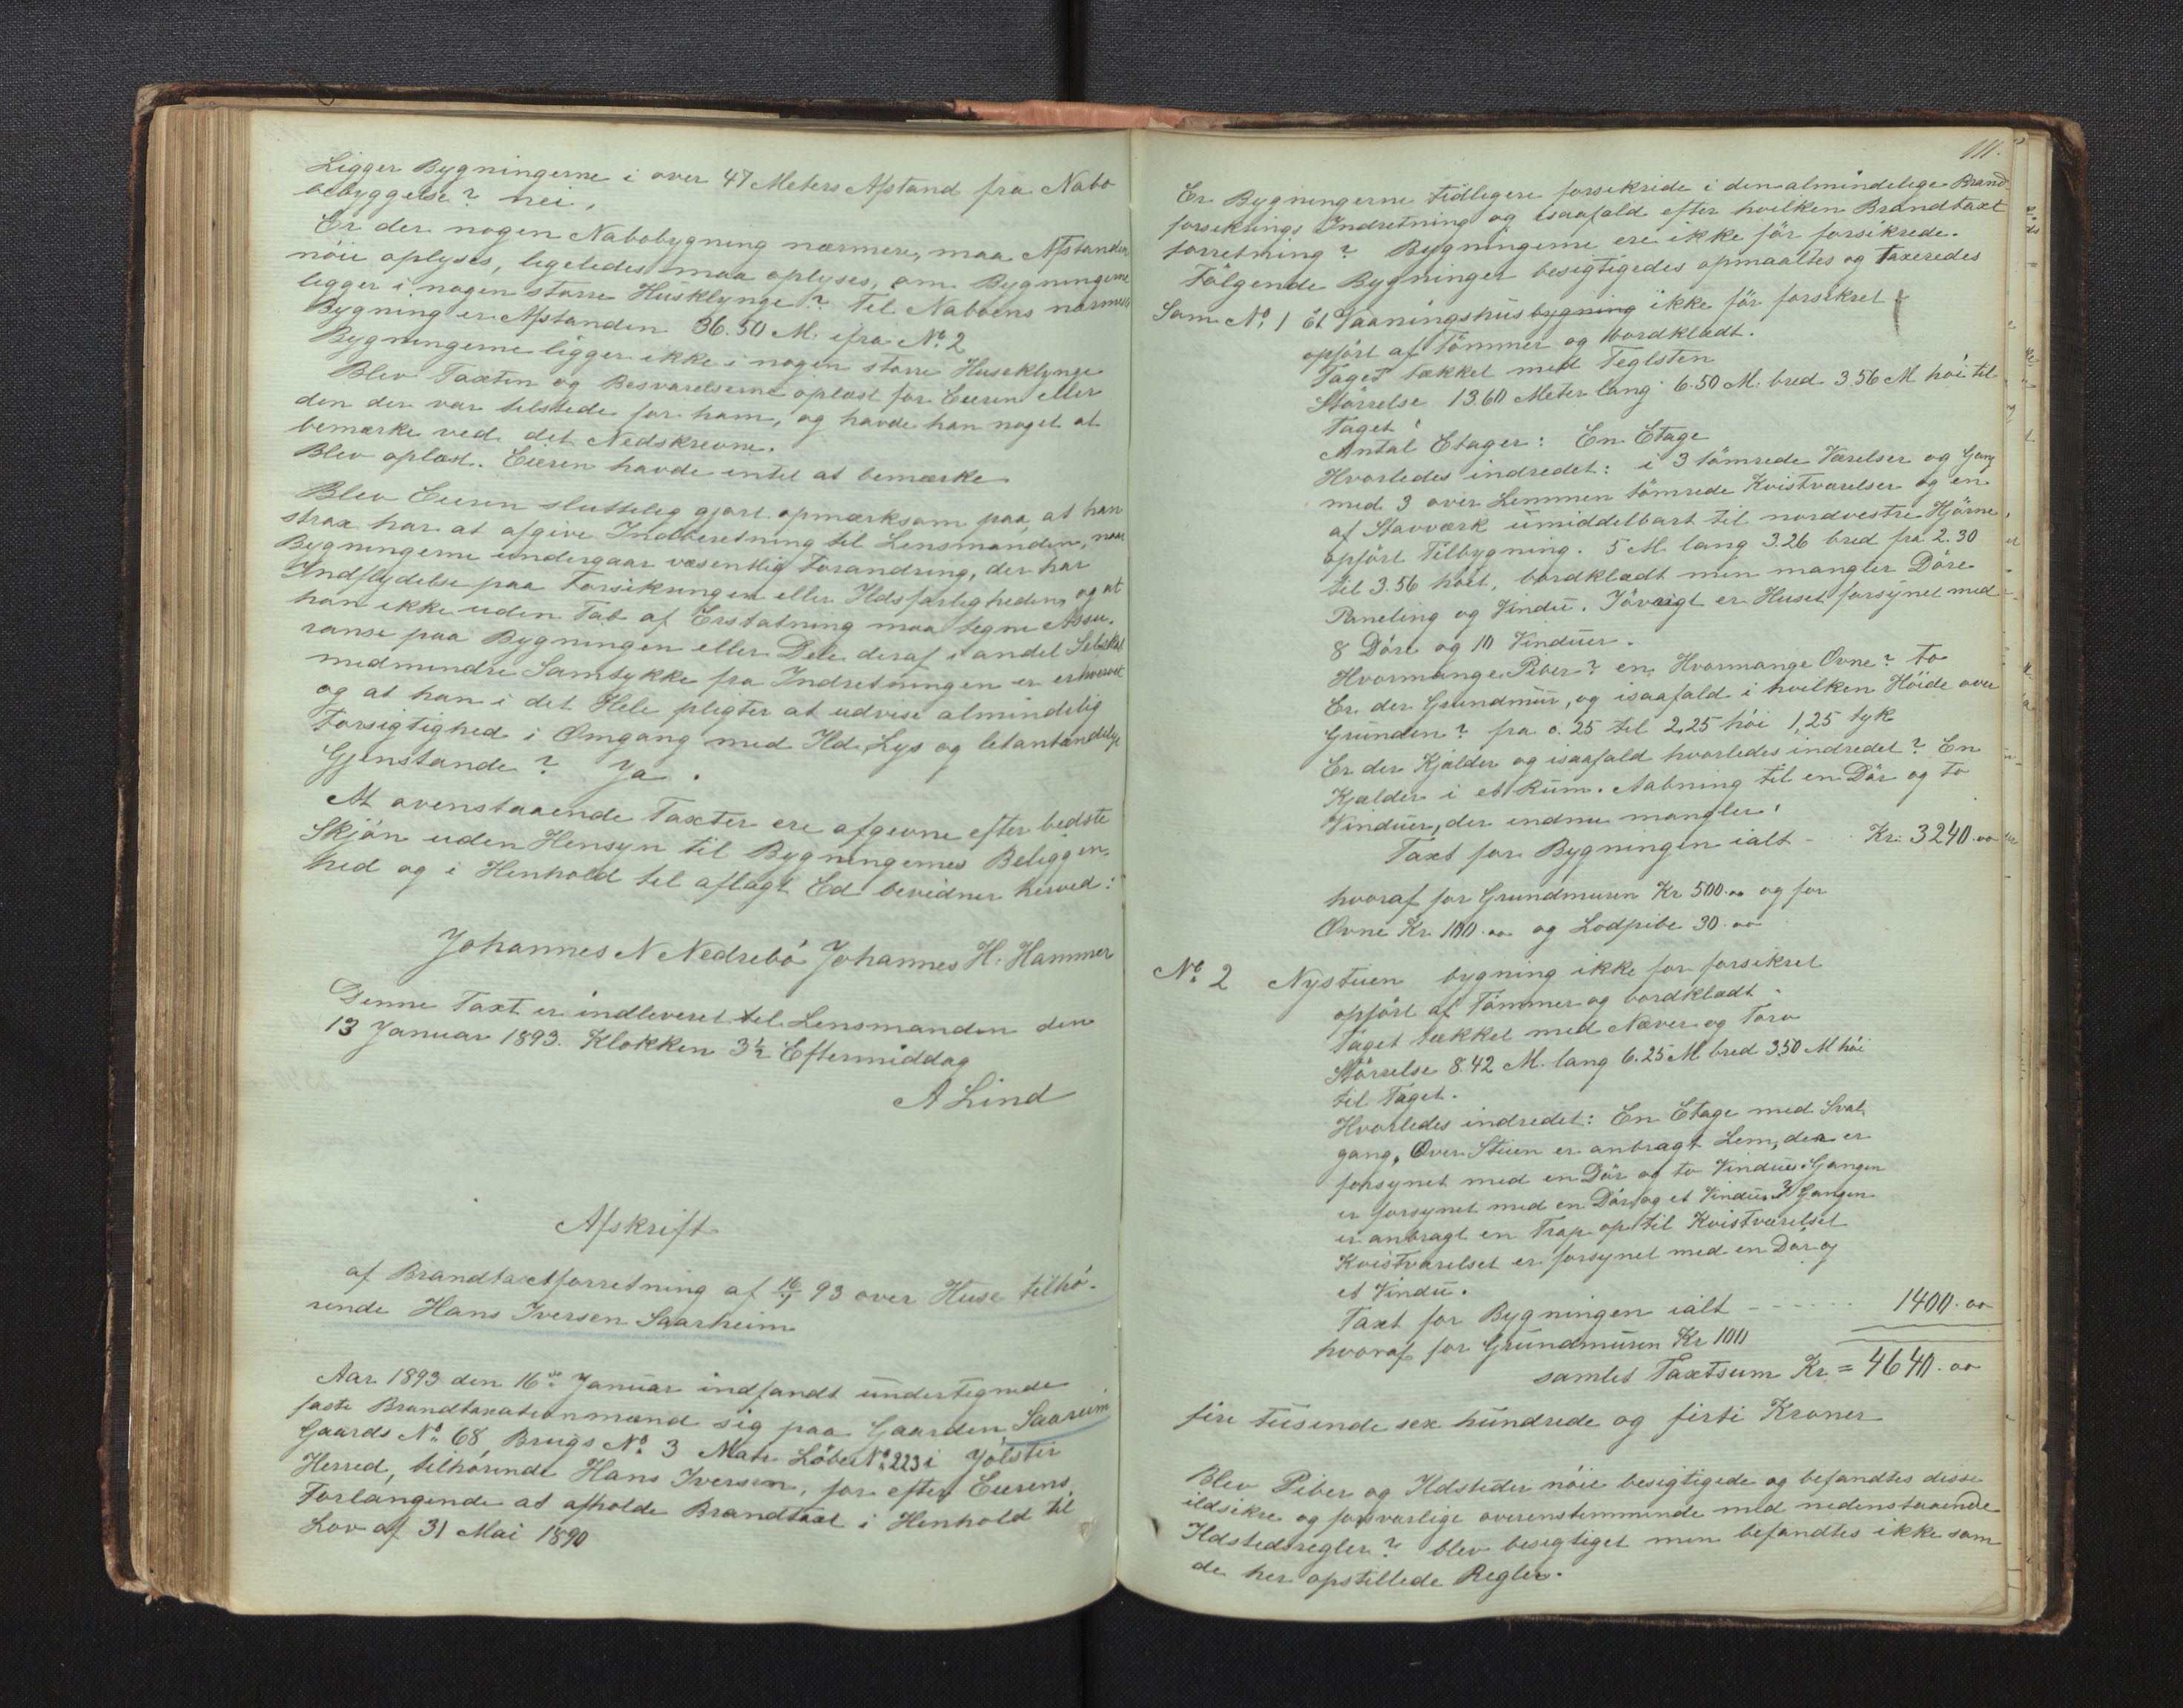 Ligger Bygningerne i over 47 Meters Afstand fra Nabo
bebyggelse? nei,
Er der nogen Nabobygning nærmere, maa Afstanden
nöie oplyses, ligeledes maa oplyses, om Bygningerne
ligger i nogen större Husklynge? Til Naboens nærmeste
Bygning er Afstanden 36.50 M. ifra No. 2
Bygningerne ligger ikke i nogen större Huseklynge
Blev Taxten og Besvarelserne oplæst for Eieren eller
den der var tilstede for ham, og havde han noget at
bemærke ved det Nedskrevne.
Blev oplæst. Eieren havde intet at bemærke
Blev Eieren sluttelig gjort opmærksom paa, at han
strax har at afgive Indberetning til Lensmanden, naar
Bygningerne undergaar væsentlig Forandring, der har
Indflydelse paa Forsikringen eller Ildsfarligheden, og at
han ikke uden Tab af Erstatning maa tegne Assu-
ranse paa Bygningen eller Dele deraf i andet Selskab
medmindre Samtykke fra Indretningen er erhvervet
og at han i det Hele pligter at udvise almindelig
Forsigtighed i Omgang med Ild, Lys og letantændelige
Gjenstande? Ja.
At ovenstaaende Taxter ere afgivne efter bedste
Skjön uden Hensyn til Bygningernes Beliggen-
hed og i Henhold til aflagt Ed bevidner herved:
Johannes N Nedrebö Johannes H. Hammer
Denne Taxt er indleveret til Lensmanden den
13 Januar 1893. Klokken 3½ Eftermiddag
A Lind
Afskrift
af Brandtaxtforretning af 16/1 93 over Huse tilhö-
rende Hans Iversen Saarheim
Aar 1893 den 16de Januar indfandt undertegnede
faste Brandtaxationsmænd sig paa Gaarden Saareim
Gaards No. 68, Brugs No. 3 Matr. Löbe No. 223 i Jölster
Herred, tilhörende Hans Iversen, for efter Eierens
Forlangende at afholde Brandtaxt i Henhold til
Lov af 31 Mai 1890
111.
Er Bygningerne tidligere forsikride i den almindelige Brand
forsikrings Indretning og isaafald efter hvilken Brandtaxt
forretning? Bygningerne ere ikke för forsikrede.
Fölgende Bygninger besigtigedes opmaaltes og taxeredes
Som No. 1 Et Vaaningshusbygning ikke för forsikret
opfört af Tömmer og bordklædt.
Taget tækket med Teglsten
Störrelse 13.60 Meter lang 6.50 M. bred 3.56 M höi til
Taget
Antal Etager: En Etage
Hvorledes indredet: i 3 tömrede Værelser og Gang
med 3 over Lemmen tömrede Kvistværelser og en
af Stavværk umiddelbart til nordvestre Hjörne
opfört Tilbygning. 5 M. lang 3.26 bred fra 2.30
til 3.56 höit, bordklædt men mangler Döre
Paneling og Vindu. Iövrigt er Huset forsynet med
8 Döre og 10 Vinduer.
Hvormange Piber? en Hvormange Ovne? to
Er der Grundmur, og isaafald i hvilken Höide over
Grunden? fra 0.25 til 2,25 höi 1,25 tyk
Er der Kjælder og isaafald hvorledes indredet? En
Kjælder i et Rum. Aabning til en Dör og to
Vinduer, der endnu mangler.
Taxt for Bygningen ialt - Kr. 3240.00
hvoraf for Grundmuren Kr 500.00 og for
Ovne Kr. 100.00 og Lodpibe 30.00
No. 2 Nystuen bygning ikke för forsikret
opfört af Tömmer og bordklædt.
Taget tækket med Næver og Torv
Störrelse 8.42 M. lang 6.25 M bred 3.50 M höi
til Taget.
Hvorledes indredet: En Etage med Sval
gang, Over Stuen er anbragt Lem, der er
forsynet med en Dör og to Vinduer. Gangen
er forsynet med en Dör og et Vindu. I Gangen
er anbragt en Trap op til Kvistværelset
Kvistværelset er forsynet med en Dör og
et Vindu.
Taxt for Bygningen ialt ------ 1400.00
hvoraf for Grundmuren Kr 100
samlet Taxtsum Kr = 4640.00
fire tusende sex hundrede og firti Kroner
Blev Piber og Ildsteder nöie besigtigede og befandtes disse
ildsikre og forsvarlige overenstemmende med nedenstaaende
Ildstedsregler? blev besigtiget men befandtes ikke som
de her opstillede Regler.